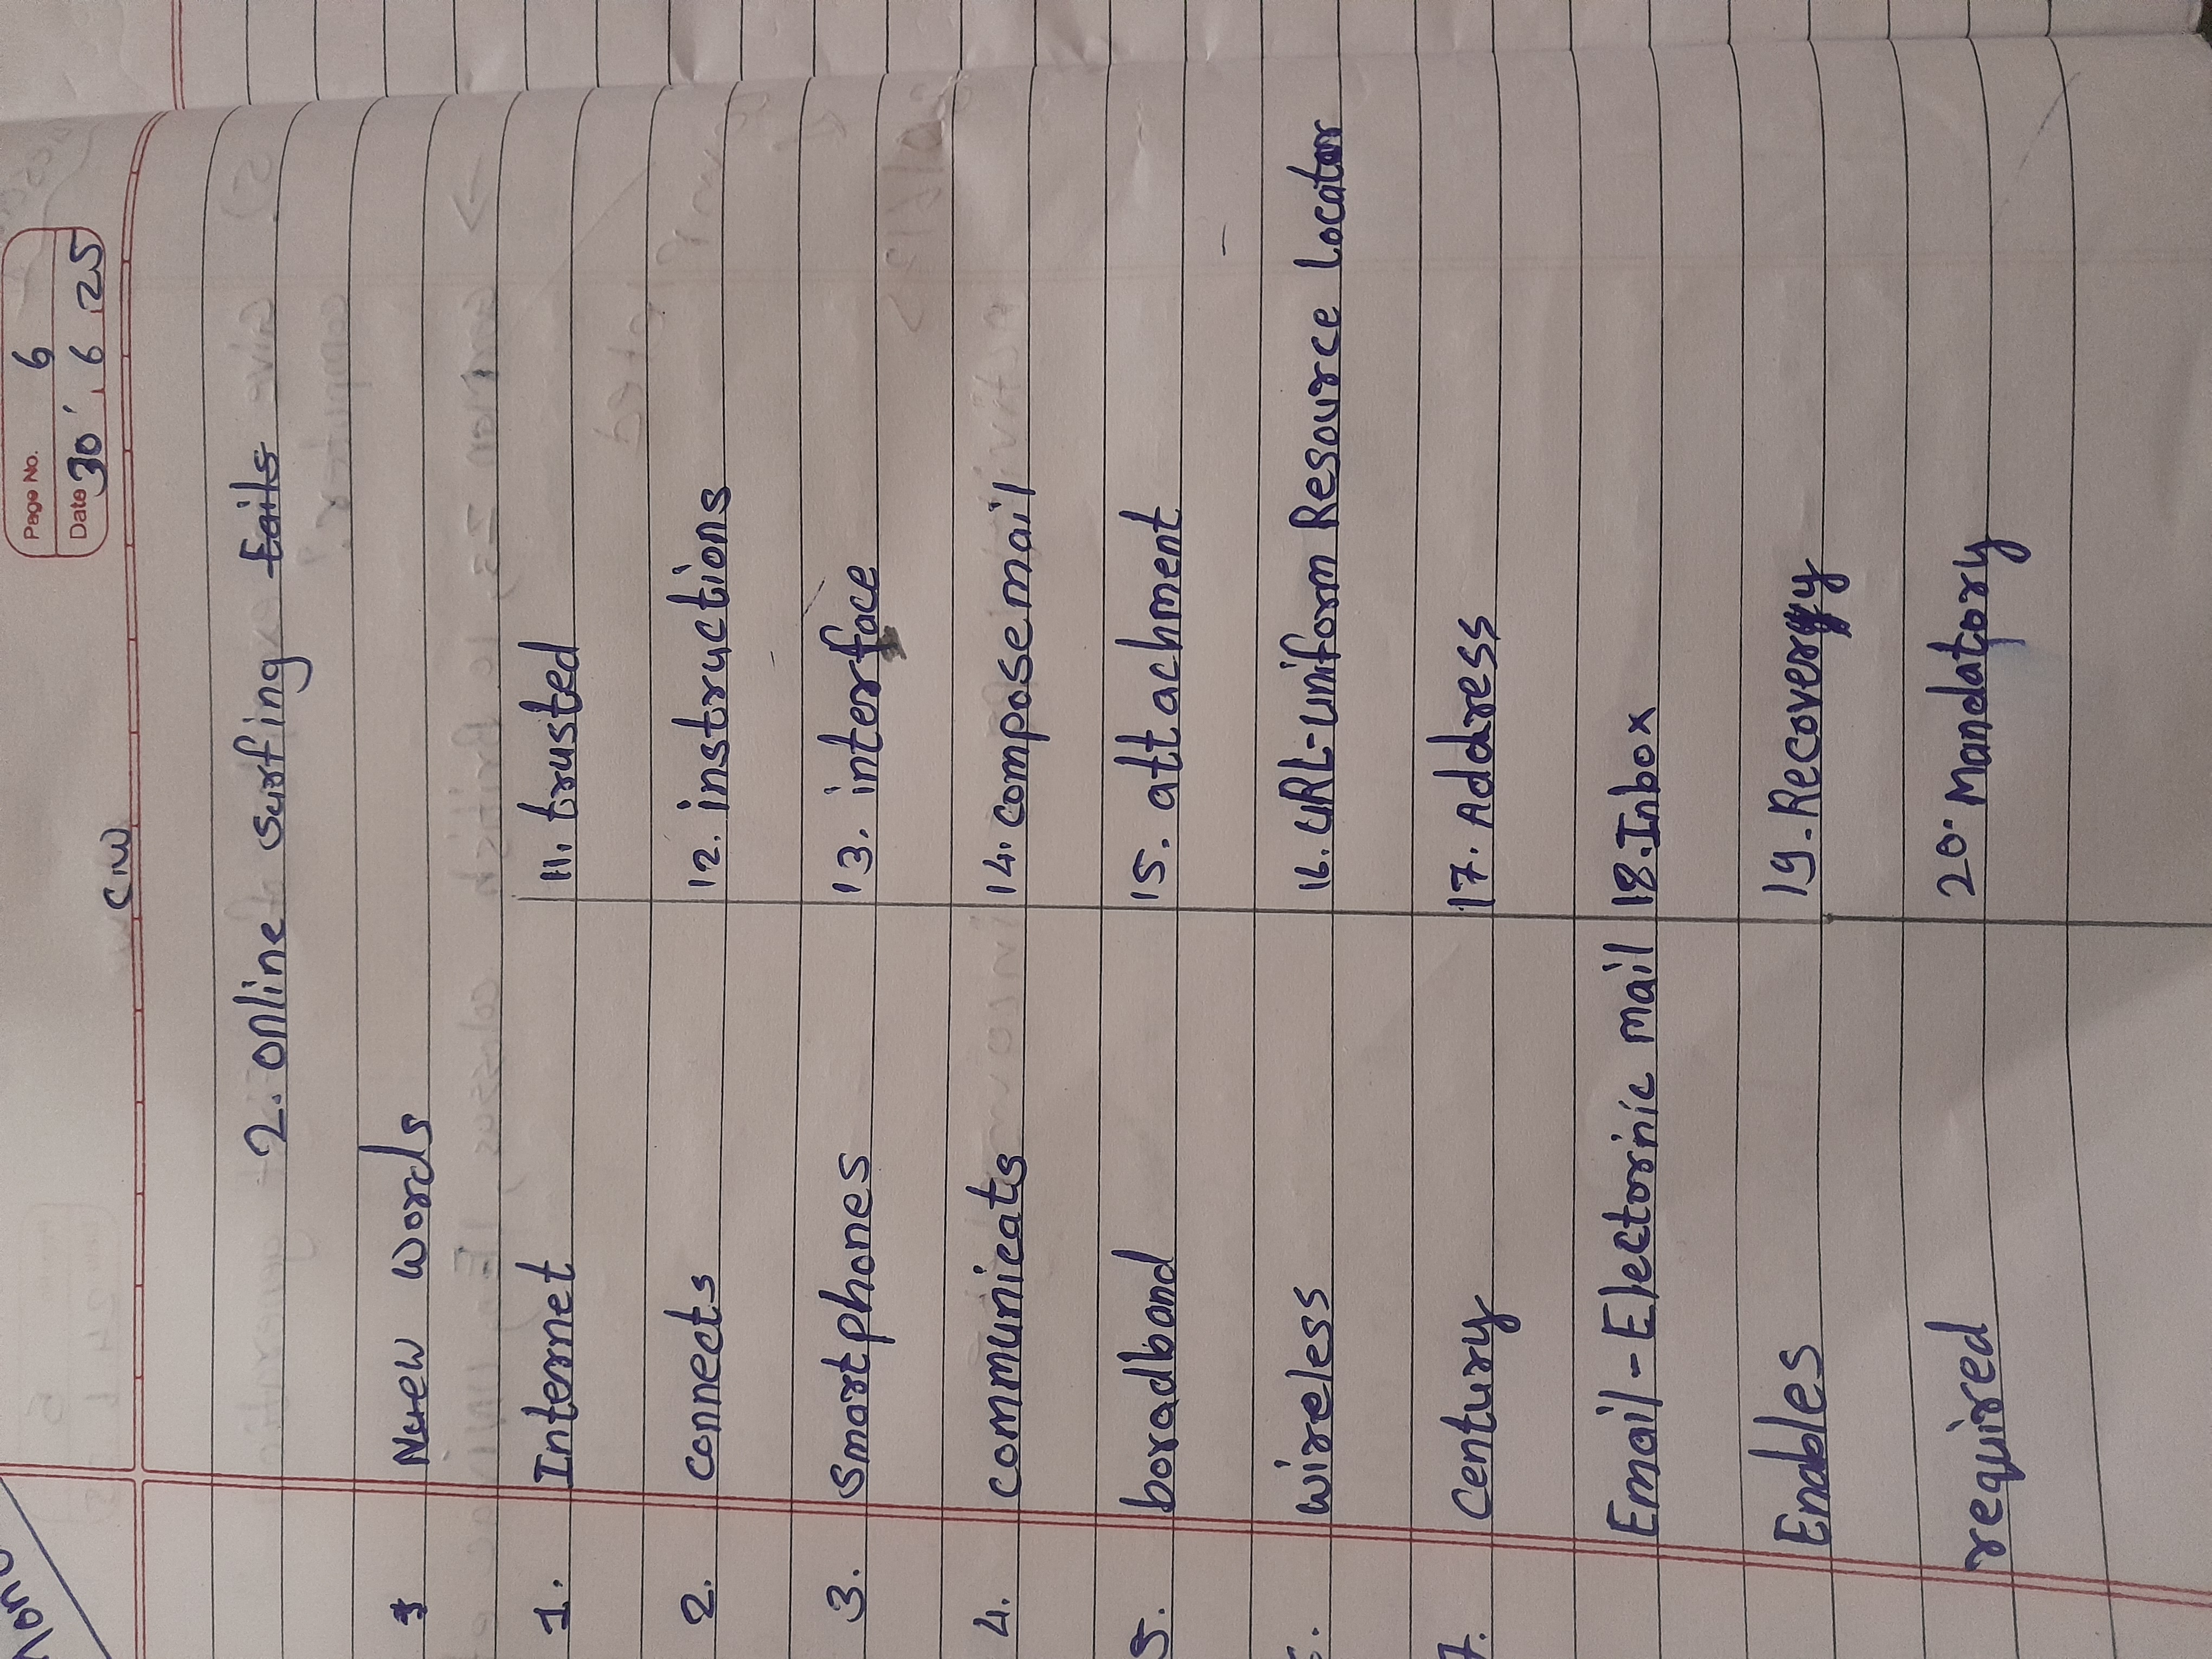 Page No. 6
Date 30 6 25
C.W
2. online surfing fails
* New words
1. Internet
11. trusted
2. connects
12. instructions
3. smartphones
13. interface
4. communicats
14. compose mail
5. boradband
15. attachment
wireless
16. URL-Uniform Resource Locator
7. Century
17. Address
Email-Electorinic mail
18. Inbox
Enables
19. Recovery
required
20. Mandatory